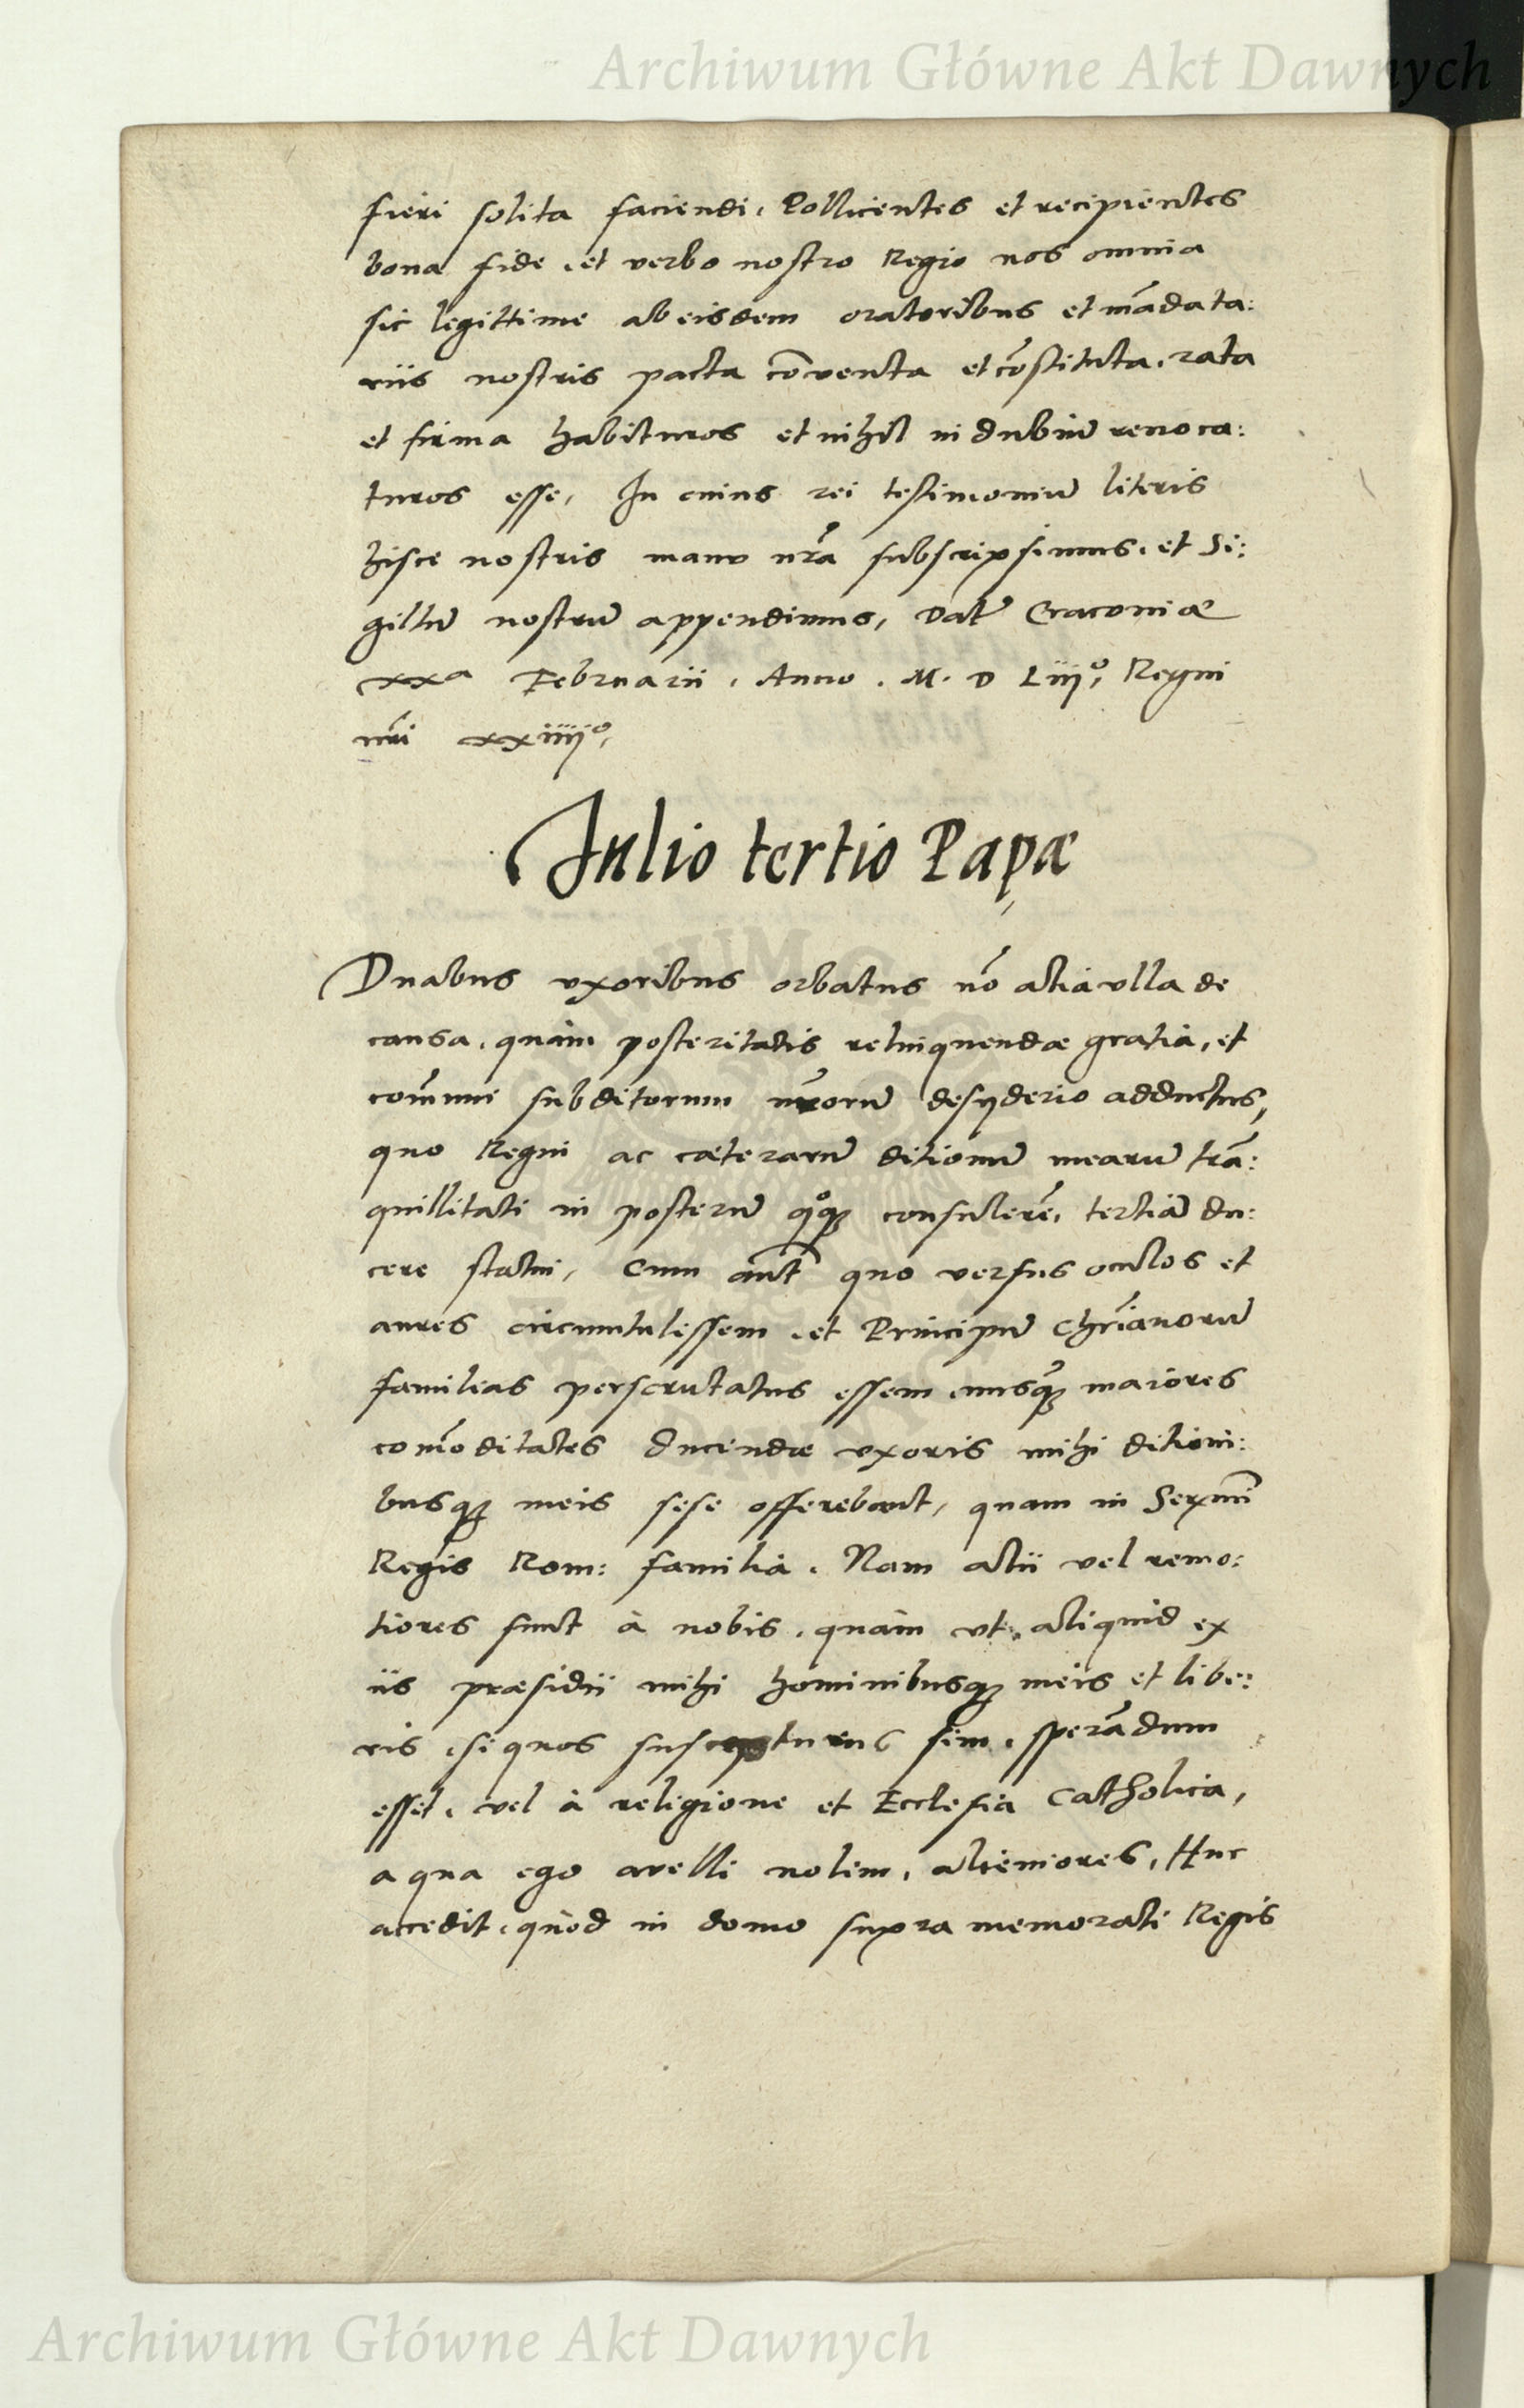 Archiwum Główne Akt Dawnych
fieri solita faciendi, Pollicentes et recipientes
bona fide, et verbo nostro Regio nos omnia
sic legittime ab eisdem oratoribus et mādata:
riis nostris pacta cōventa et cōstituta, rata
et firma habituros et nihil in dubiū revoca:
turos esse, In cuius rei testimoniū literis
hisce nostris manu nrā subscripsimus, et Si:
gillū nostrū appendimus, Dat Cracoviæ
xxa Februarii, Anno. M. D Liijo, Regni
nri xxiiijo,
Iulio tertio Papæ
Duabus uxoribus orbatus nō alia ulla de
causa, quàm posteritatis relinquendæ gratia, et
com̄uni subditorum meorū desyderio adductus,
quo Regni ac cæterarū ditionū mearū trā:
quillitati in posterū qoq; consulerē, tertiā du:
cere statui, Cum aut quo versus oculos et
aures circumtulissem, et Principū Chrianorū
familias perscrutatus essem, nusq̄ maiores
com̄oditates ducendæ uxoris mihi ditioni:
busq; meis sese offerebant, quam in Serxmi
Regis Rom: familia. Nam alii vel remo:
tiores sunt à nobis, quàm ut, aliquid ex
iis præsidii mihi hominibusq; meis et libe:
ris, si quos suscepturus sim, sperādum
esset, vel à religione et Ecclesia Catholica,
a qua ego avelli nolim, alieniores, Huc
accedit, quòd in domo supra memorati Regis
Archiwum Główne Akt Dawnych